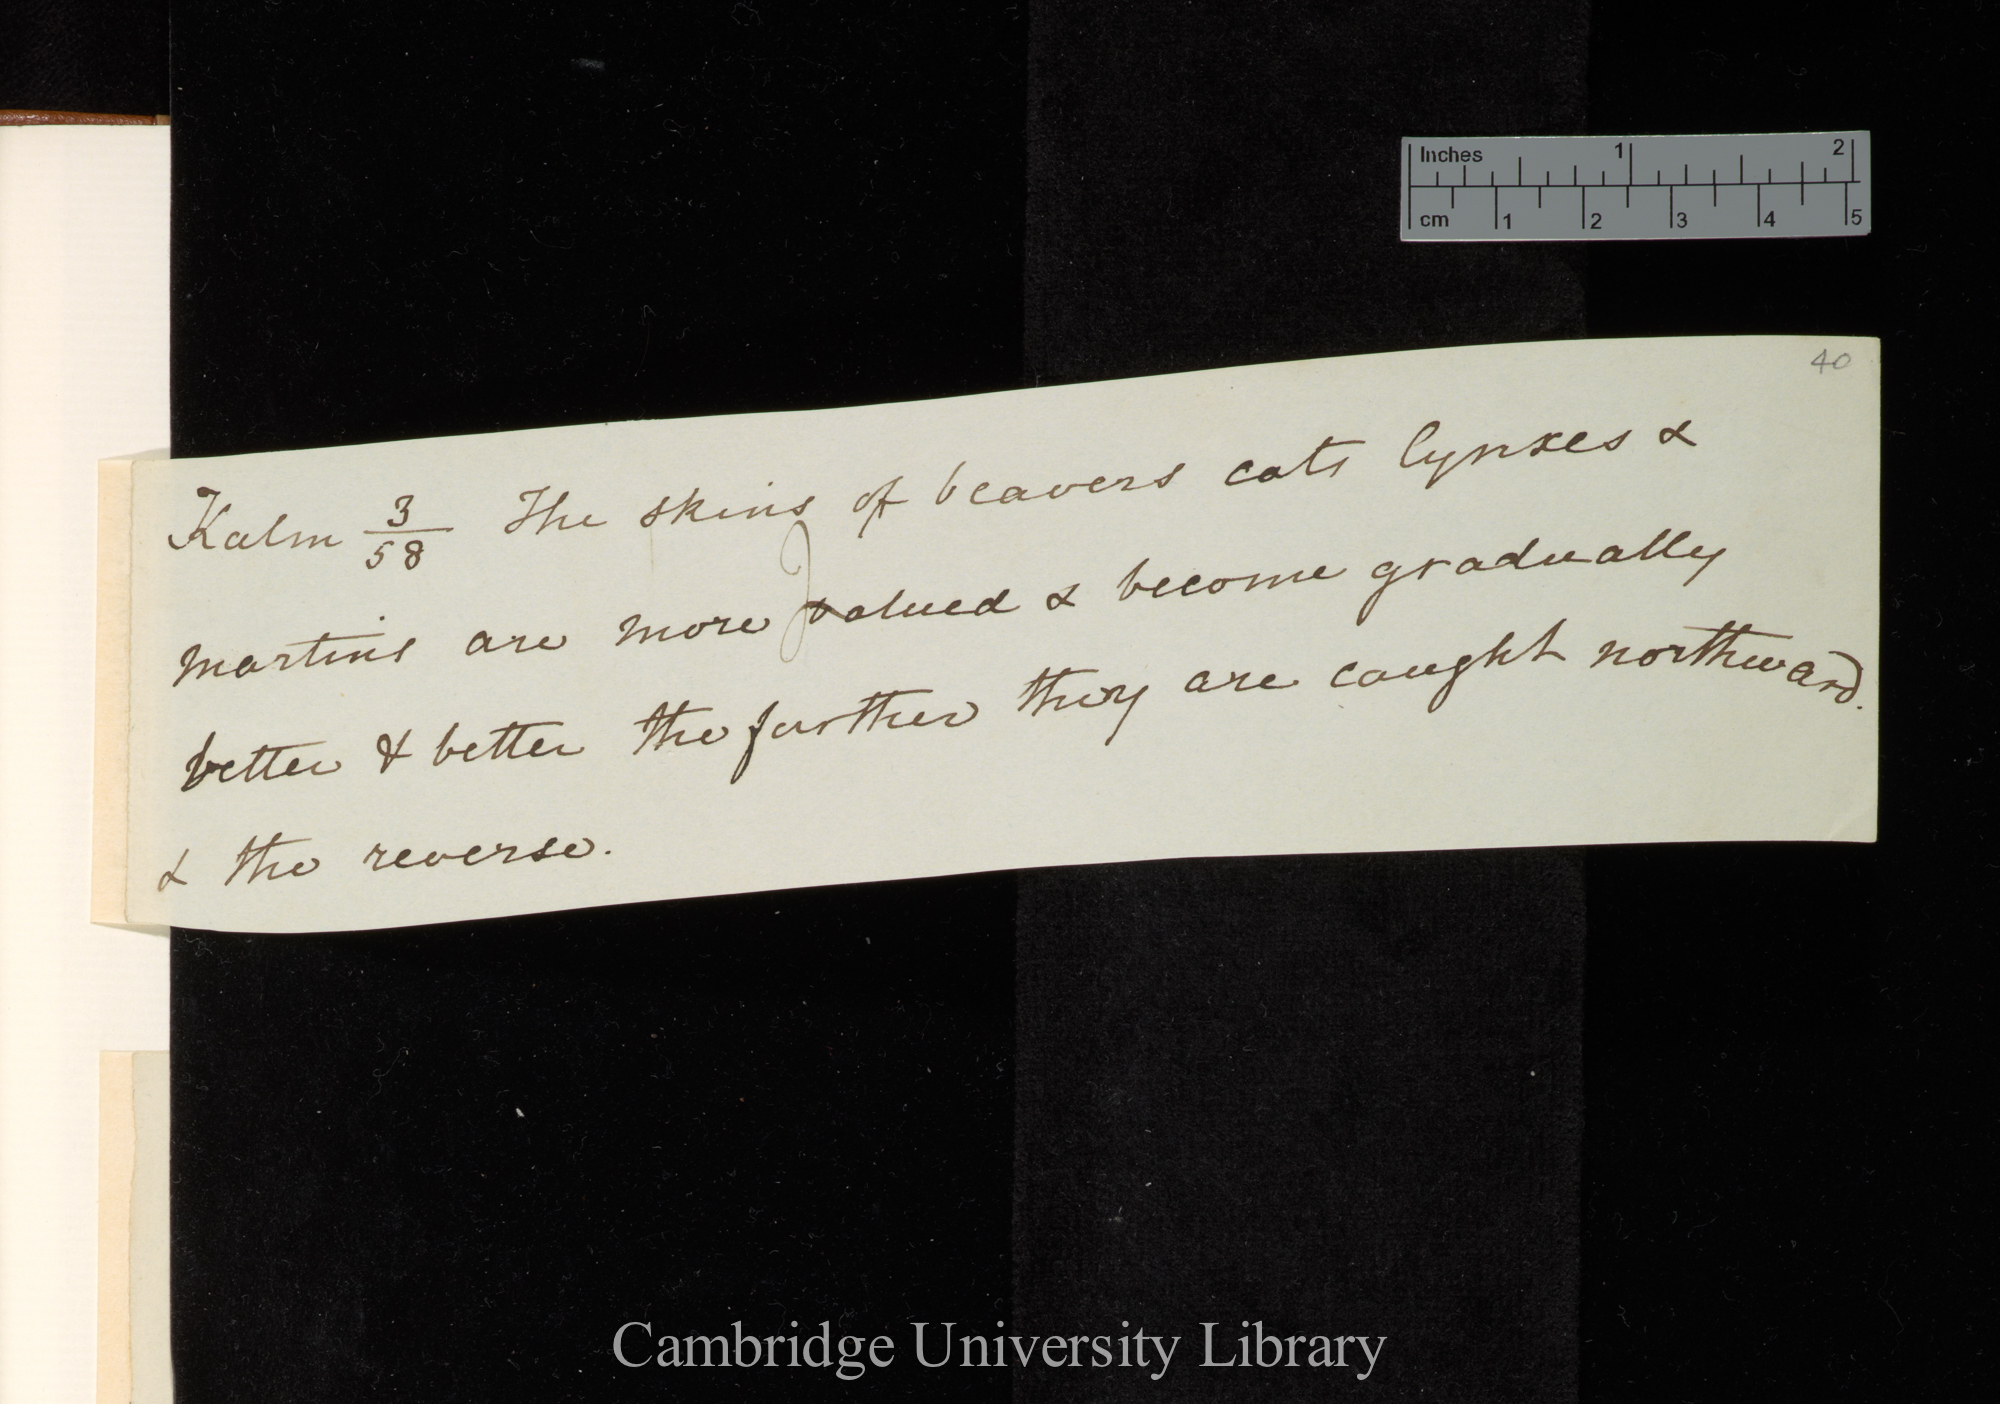 Inches 1 2
cm 1 2 3 4 5
40
Kalm 3/58 The skins of beavers cats lynxes &
martins are more valued & become gradually
better & better the further they are caught northward.
& the reverse.
Cambridge University Library